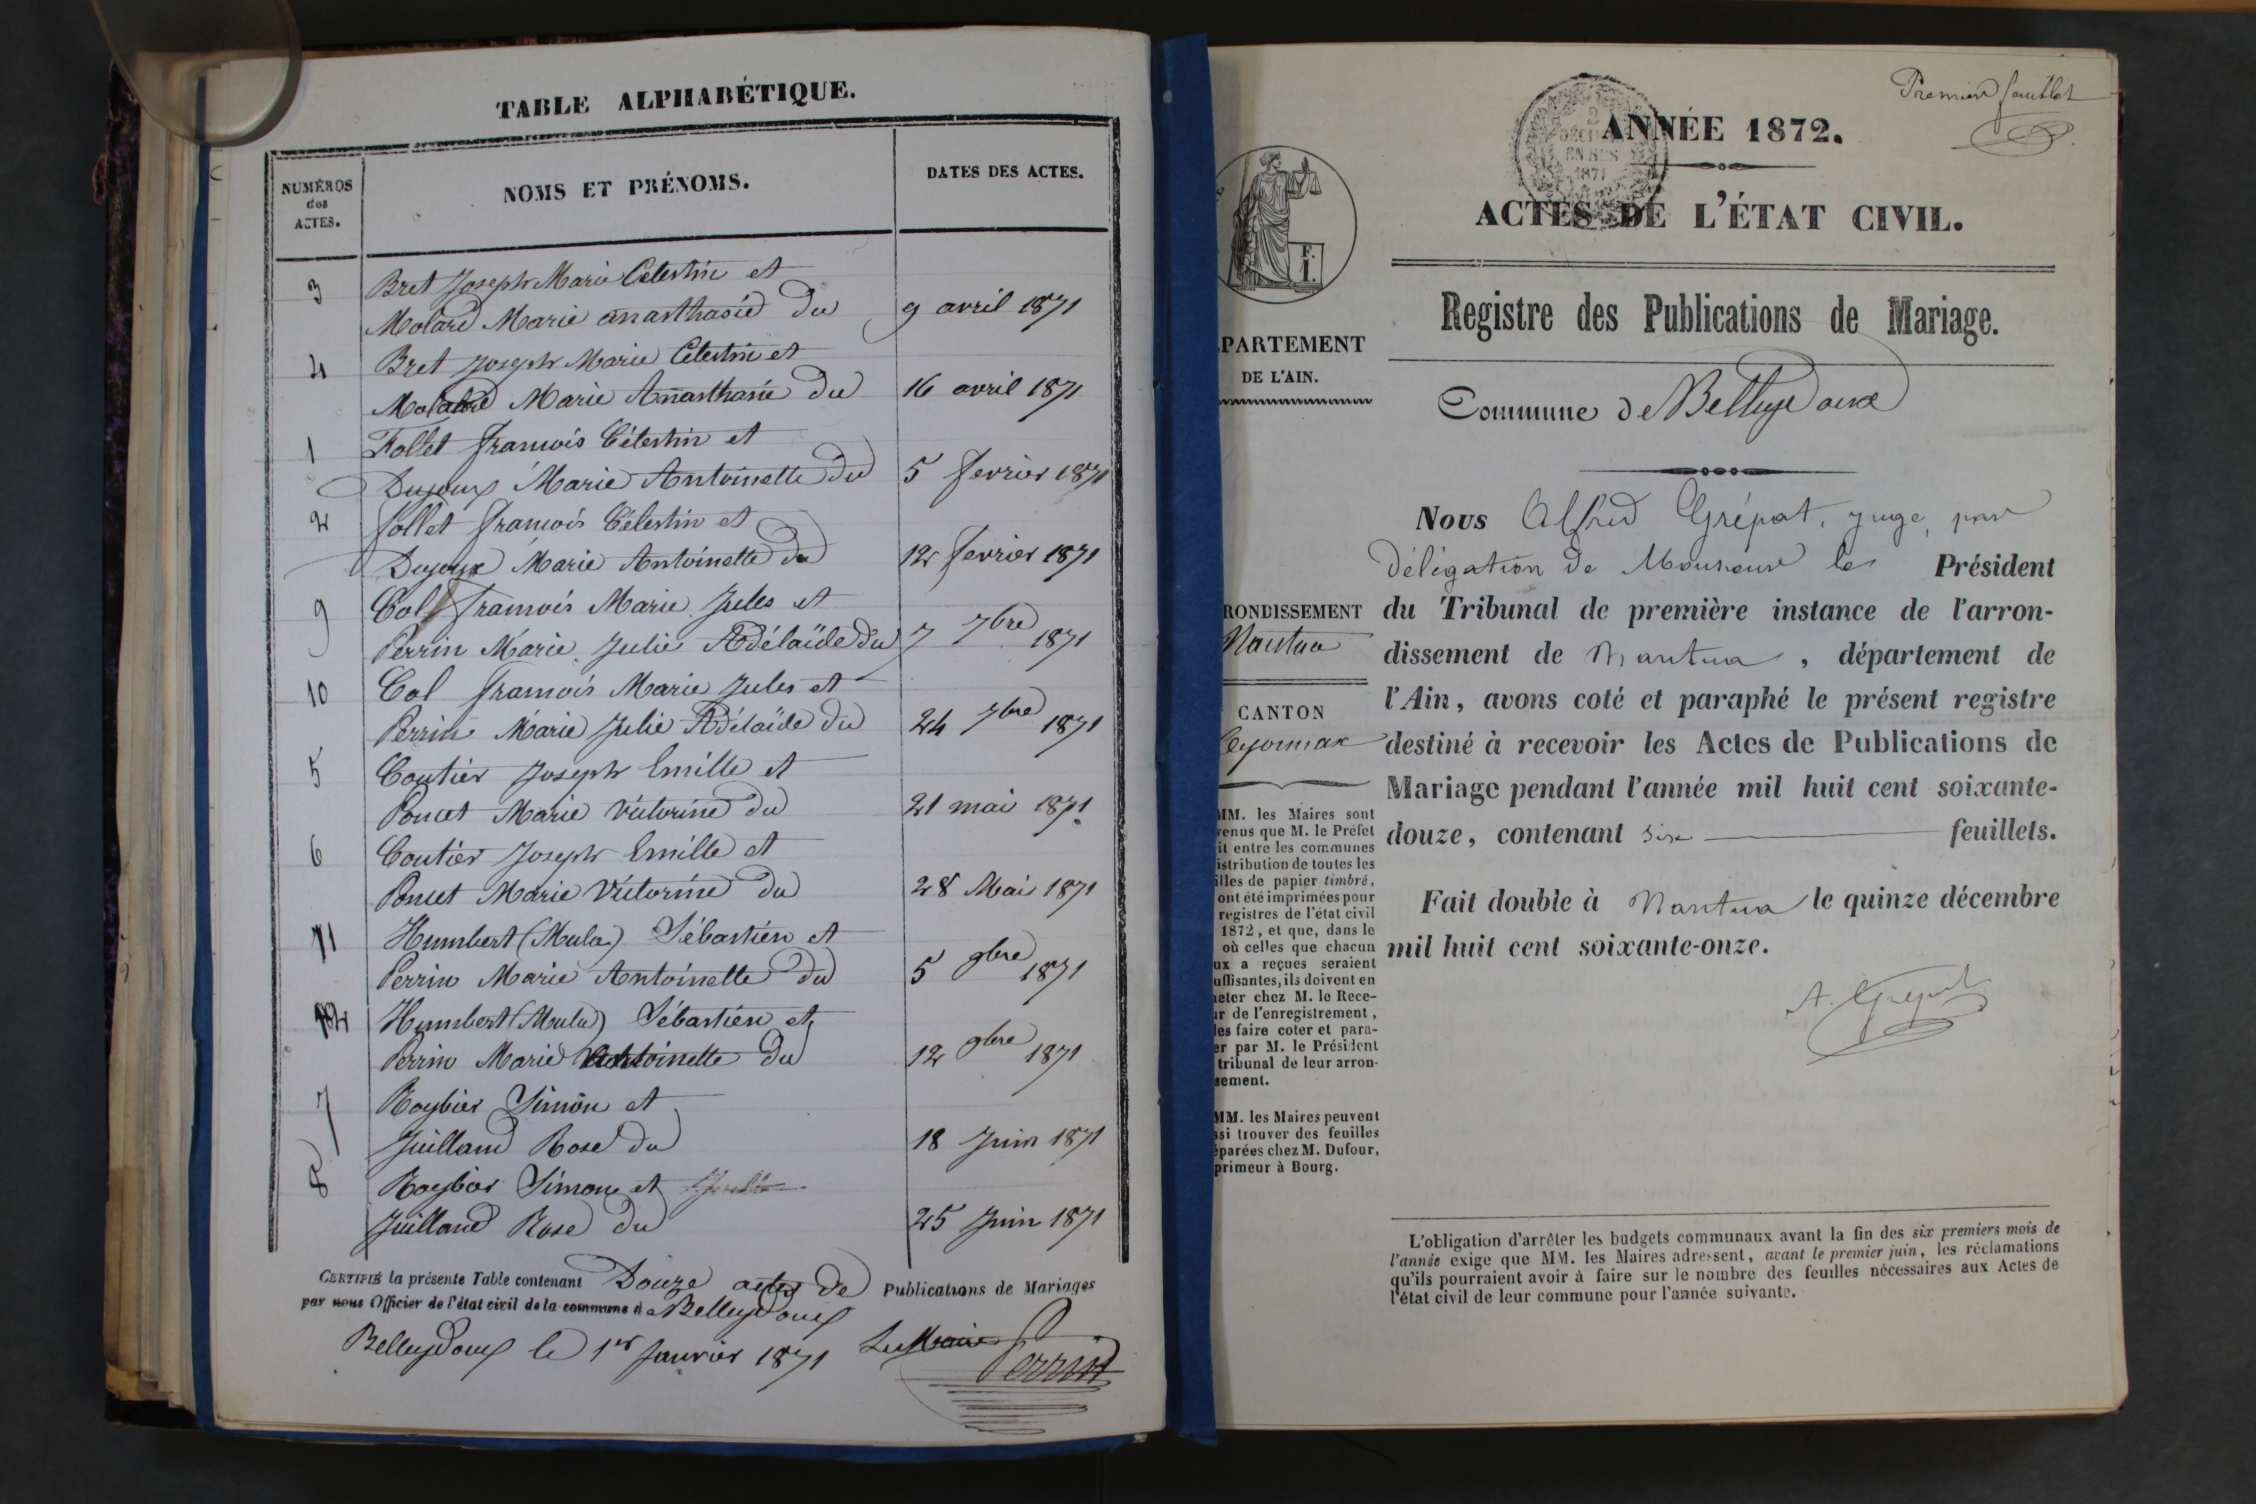 TABLE ALPHABÉTIQUE.
NUMÉROS
des
ACTES.
NOMS ET PRÉNOMS.
DATES DES ACTES.
3 Bret Joseph Marie Célestin et
Molard Marie anasthasie du 9 avril 1871
4 Bret Joseph Marie Célestin et
Molard Marie Anasthasie du 16 avril 1871
1 Follet François Célestin et
Dujoux Marie Antoinette du 5 fevrier 1871
2 Follet François Célestin et
Dujoux Marie Antoinette du 12 fevrier 1871
9 Col François Marie Jules et
Perrin Marie Julie Adélaïde du 7 7bre 1871
10 Col François Marie Jules et
Perrin Marie Julie Adélaïde du 24 7bre 1871
5 Coutier Joseph Emille et
Poncet Marie Victorine du 21 mai 1871.
6 Coutier Joseph Emille et
Poncet Marie Victorine du 28 Mai 1871
11 Humbert (Mula) Sébastien et
Perrin Marie Antoinette du 5 9bre 1871
12 Humbert (Mula) Sébastien et
Perrin Marie Antoinette du 12 9bre 1871
7 Roybier Simon et
Juilland Rose du 18 Juin 1871
8 Roybier Simon et
Juilland Rose du 25 Juin 1871
CERTIFIÉ la présente Table contenant Douze actes de Publications de Mariages
par nous Officier de l'état civil de la commune d Belleydoux
Belleydoux le 1er Janvier 1871 Le Maire
Perrin
Premier feuillet
ANNÉE 1872.
ACTES DE L'ÉTAT CIVIL.
F.
I.
PARTEMENT
DE L'AIN.
Registre des Publications de Mariage.
Commune de Belleydoux
RONDISSEMENT
Nantua
CANTON
Oyonnax
MM. les Maires sont
venus que M. le Préfet
it entre les communes
istribution de toutes les
illes de papier timbré,
ont été imprimées pour
registres de l'état civil
1872, et que, dans le
où celles que chacun
ux a reçues seraient
uffisantes, ils doivent en
heter chez M. le Rece-
ur de l'enregistrement,
les faire coter et para-
er par M. le Président
tribunal de leur arron-
sement.
MM. les Maires peuvent
ssi trouver des feuilles
éparées chez M. Dufour,
primeur à Bourg.
Nous Alfred Grépat, juge, par
délégation de Monsieur le Président
du Tribunal de première instance de l'arron-
dissement de Nantua, département de
l'Ain, avons coté et paraphé le présent registre
destiné à recevoir les Actes de Publications de
Mariage pendant l'année mil huit cent soixante-
douze, contenant six feuillets.
Fait double à Nantua le quinze décembre
mil huit cent soixante-onze.
A. Grépat
L'obligation d'arrêter les budgets communaux avant la fin des six premiers mois de
l'année exige que MM. les Maires adressent, avant le premier juin, les réclamations
qu'ils pourraient avoir à faire sur le nombre des feuilles nécessaires aux Actes de
l'état civil de leur commune pour l'année suivante.